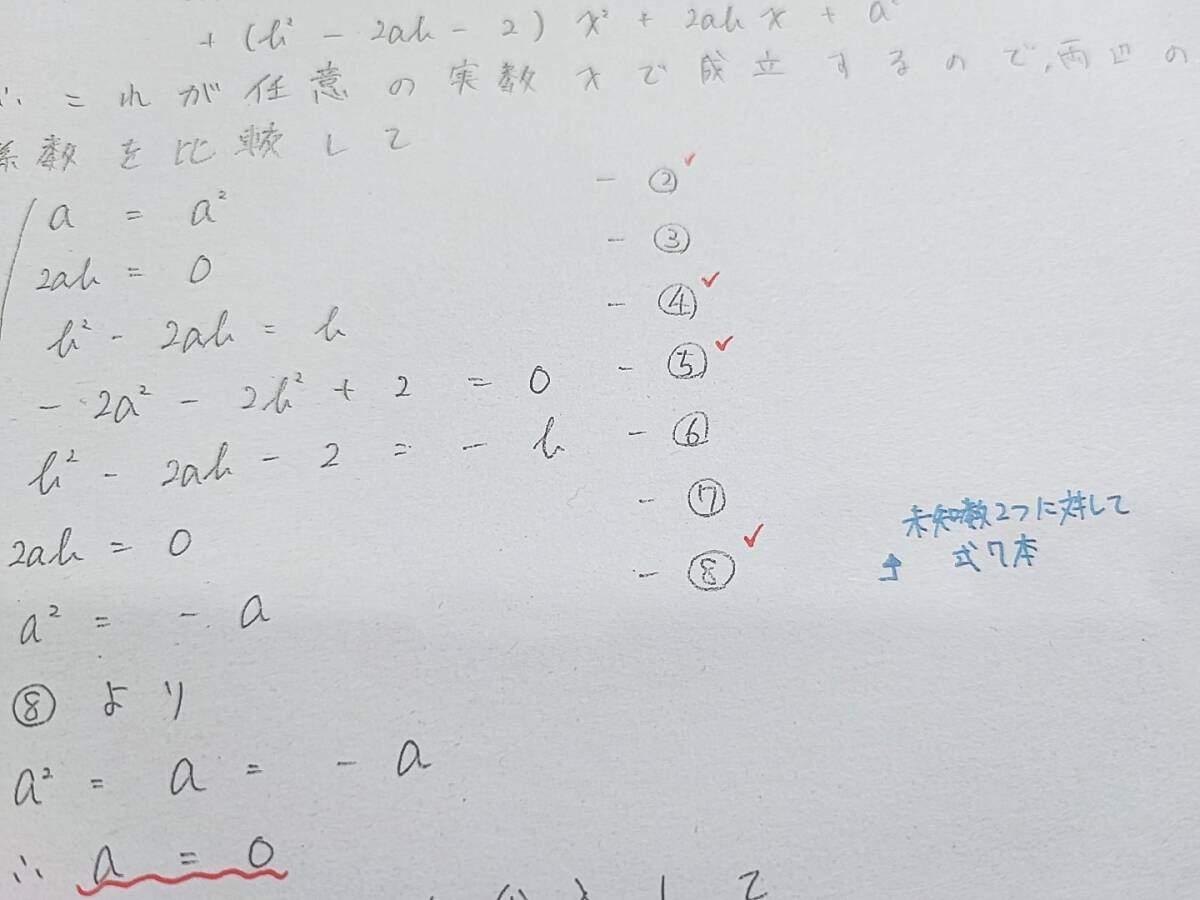 + (b² - 2ab - 2) x² + 2ab x + a²
∴ これが任意の実数 x で成立するので、両辺の
係数を比較して
a = a² - ②
2ab = 0 - ③
b² - 2ab = b - ④
- 2a² - 2b² + 2 = 0 - ⑤
b² - 2ab - 2 = - b - ⑥
2ab = 0 - ⑦
a² = - a - ⑧
未知数2つに対して
式7本
⑧ より
a² = a = - a
∴ a = 0
として